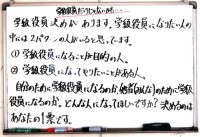 学級役員だけじゃないけど…
学級役員決めがあります。学級役員になりたい人の
中には2パターンの人がいると思っています。
① 学級役員になることが目的の人。
② 学級役員になってやりたいことがある人。
自分のために学級役員になるのか、他者(みんな)のために学級
役員になるのか。どんな人になってほしいですか？決めるのは
あなたの1票です。